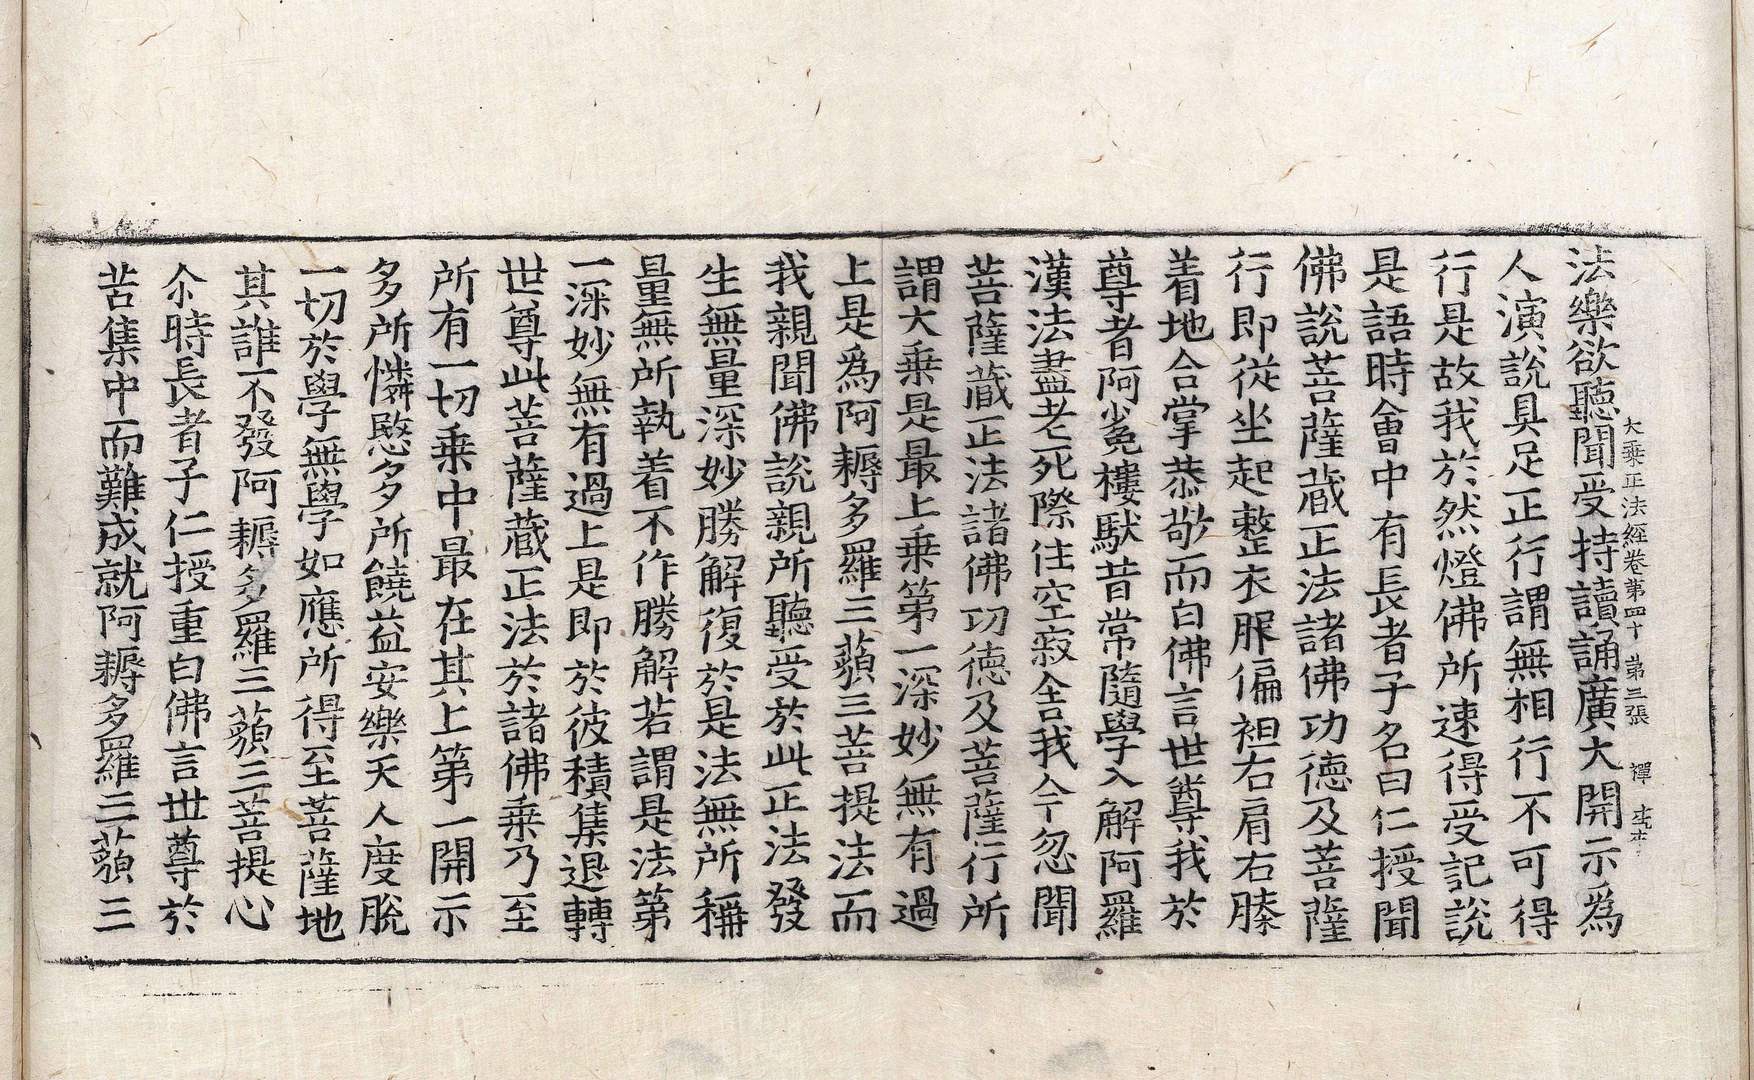 大乗正法經卷第四十 第三張 禪
法樂欲聽聞受持讀誦廣大開示為
人演說具足正行謂無相行不可得
行是故我於然燈佛所速得受記說
是語時會中有長者子名曰仁授聞
佛說菩薩藏正法諸佛功德及菩薩
行即從坐起整衣服偏袒右肩右膝
着地合掌恭敬而白佛言世尊我於
尊者阿㝹樓馱昔常隨學入解阿羅
漢法盡老死際住空寂舍我今忽聞
菩薩藏正法諸佛功德及菩薩行所
謂大乗是最上乗第一深妙無有過
上是為阿耨多羅三藐三菩提法而
我親聞佛說親所聽受於此正法發
生無量深妙勝解復於是法無所稱
量無所執着不作勝解若謂是法第
一深妙無有過上是即於彼積集退轉
世尊此菩薩藏正法於諸佛乗乃至
所有一切乗中最在其上第一開示
多所憐愍多所饒益安樂天人度脫
一切於學無學如應所得至菩薩地
其誰不發阿耨多羅三藐三菩提心
尒時長者子仁授重白佛言世尊於
苦集中而難成就阿耨多羅三藐三